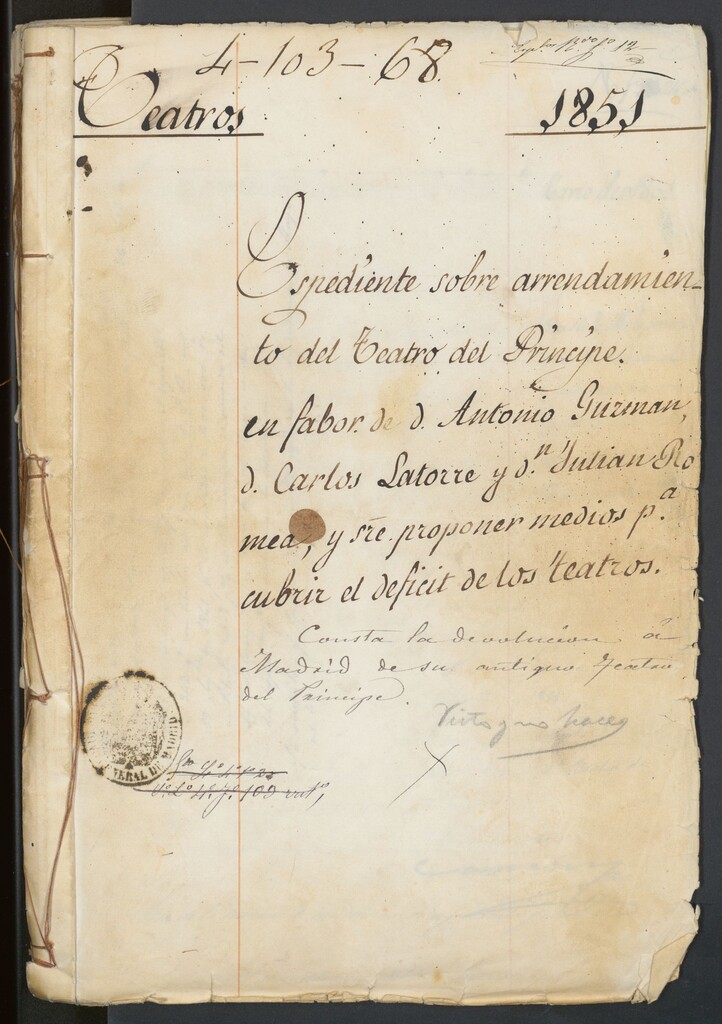 4-103-68
Teatros
1851
Espediente sobre arrendamien-
to del Teatro del Principe.
en fabor de d. Antonio Guzman,
d. Carlos Latorre y d.n Julian Ro
mea, y sre. proponer medios p.a
cubrir el deficit de los teatros.
Consta la devolucion á
Madrid de su antiguo Teatro
del Principe.
NERAL DE MADRID